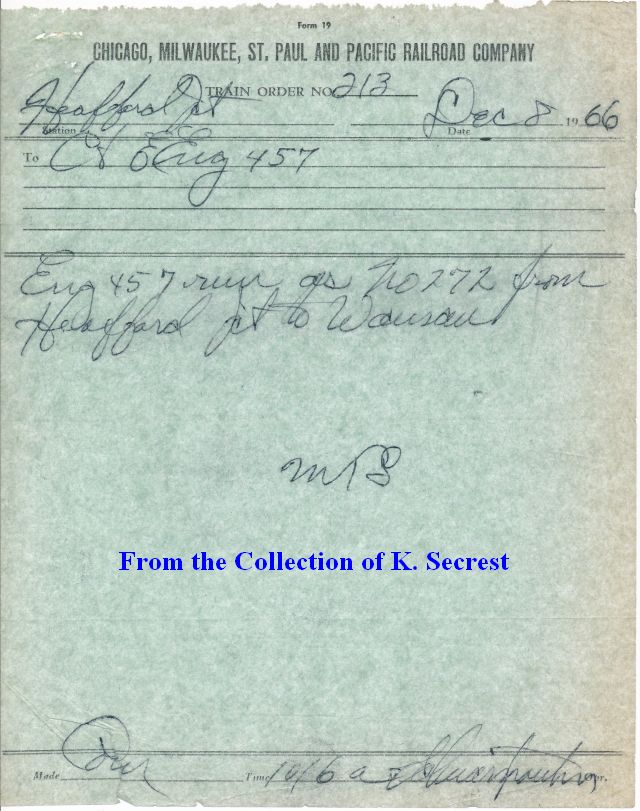 Form 19
CHICAGO, MILWAUKEE, ST. PAUL AND PACIFIC RAILROAD COMPANY
TRAIN ORDER NO. 213
Heafford Jct Dec 8 1966
Station Date
To C&E Eng 457
Eng 457 run as No 272 from
Heafford Jct to Wausau
From the Collection of K. Secrest
Made Com Time 1016 a Opr.